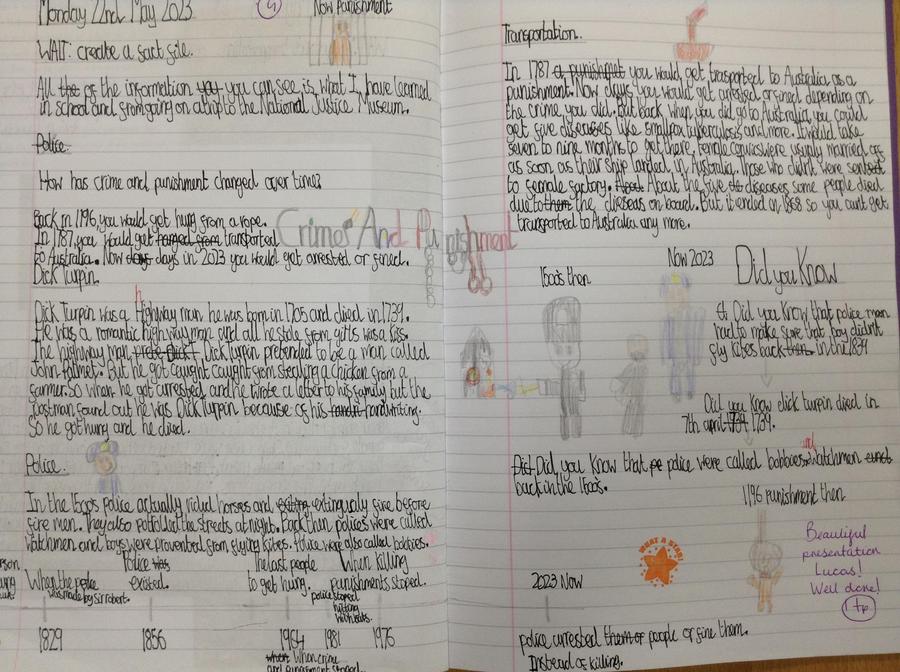 Monday 22nd May 2023
Now punishment
WALT: create a fact file.
All the of the information you you can see is what I have learned
in school and from going on a trip to the National Justice Museum.
Police.
How has crime and punishment changed over time?
Back in 1196, you would get hung from a rope.
In 1787 you would get hanged from transported
to Australia. Now days days in 2023 you would get arrested or fined.
Crimes And Punishment
Dick Turpin.
Dick Turpin was a Highway man he was born in 1705 and died in 1739.
He was a romantic highway man and all he stole from girls was a kiss.
The highway man Dick Turpin pretended to be a man called
John Palmer. But he got caught caught from stealing a chicken from a
farmer. So when he got arrested and he wrote a letter to his family but the
postman found out he was Dick Turpin because of his handwriting.
So he got hung and he died.
Police.
In the 1600s police actually rided horses and extinguely fire before
fire men. They also potrolled the streets at night. Back then polices were called
watchmen and boys were prevented from flying kites. Police were also called bobbies.
When the police
was made by sir robert.
Police was
existed.
The last people
to get hung.
When killing
punishments stoped.
police stoped
hitting
with bats.
1829
1856
1964
1981
1976
when When crime
and punishment stoped
Transportation.
In 1787 a punishmet you would get trasported to Australia as a
punishment. Now days you would get arrested or fined depending on
the crime you did. But back when you did go to Australia, you could
get five diseases like smallpox, tuberculosis and more. It would take
seven to nine months to get there, female convics were usually married off
as soon as their ship landed in Australia. Those who didn't were sent
to female factory. About About the five diseases some people died
due to them the diseases on board. But it ended on 1868 so you can't get
transported to Australia any more.
1600s then
Now 2023
Did you Know
Did you Know that police men
had to make sure that boy didn't
fly kites back then in the 1839
Did you Know dick turpin died in
7th april 1739 1739.
Did Did you Know that pe police were called bobbies and Watchmen
back in the 1600s.
1196 punishment then
WHAT A STAR!
Beautiful
presentation
Lucas!
Well done!
tp
2023 Now
police arrested them or people or fine them.
Instead of killing.